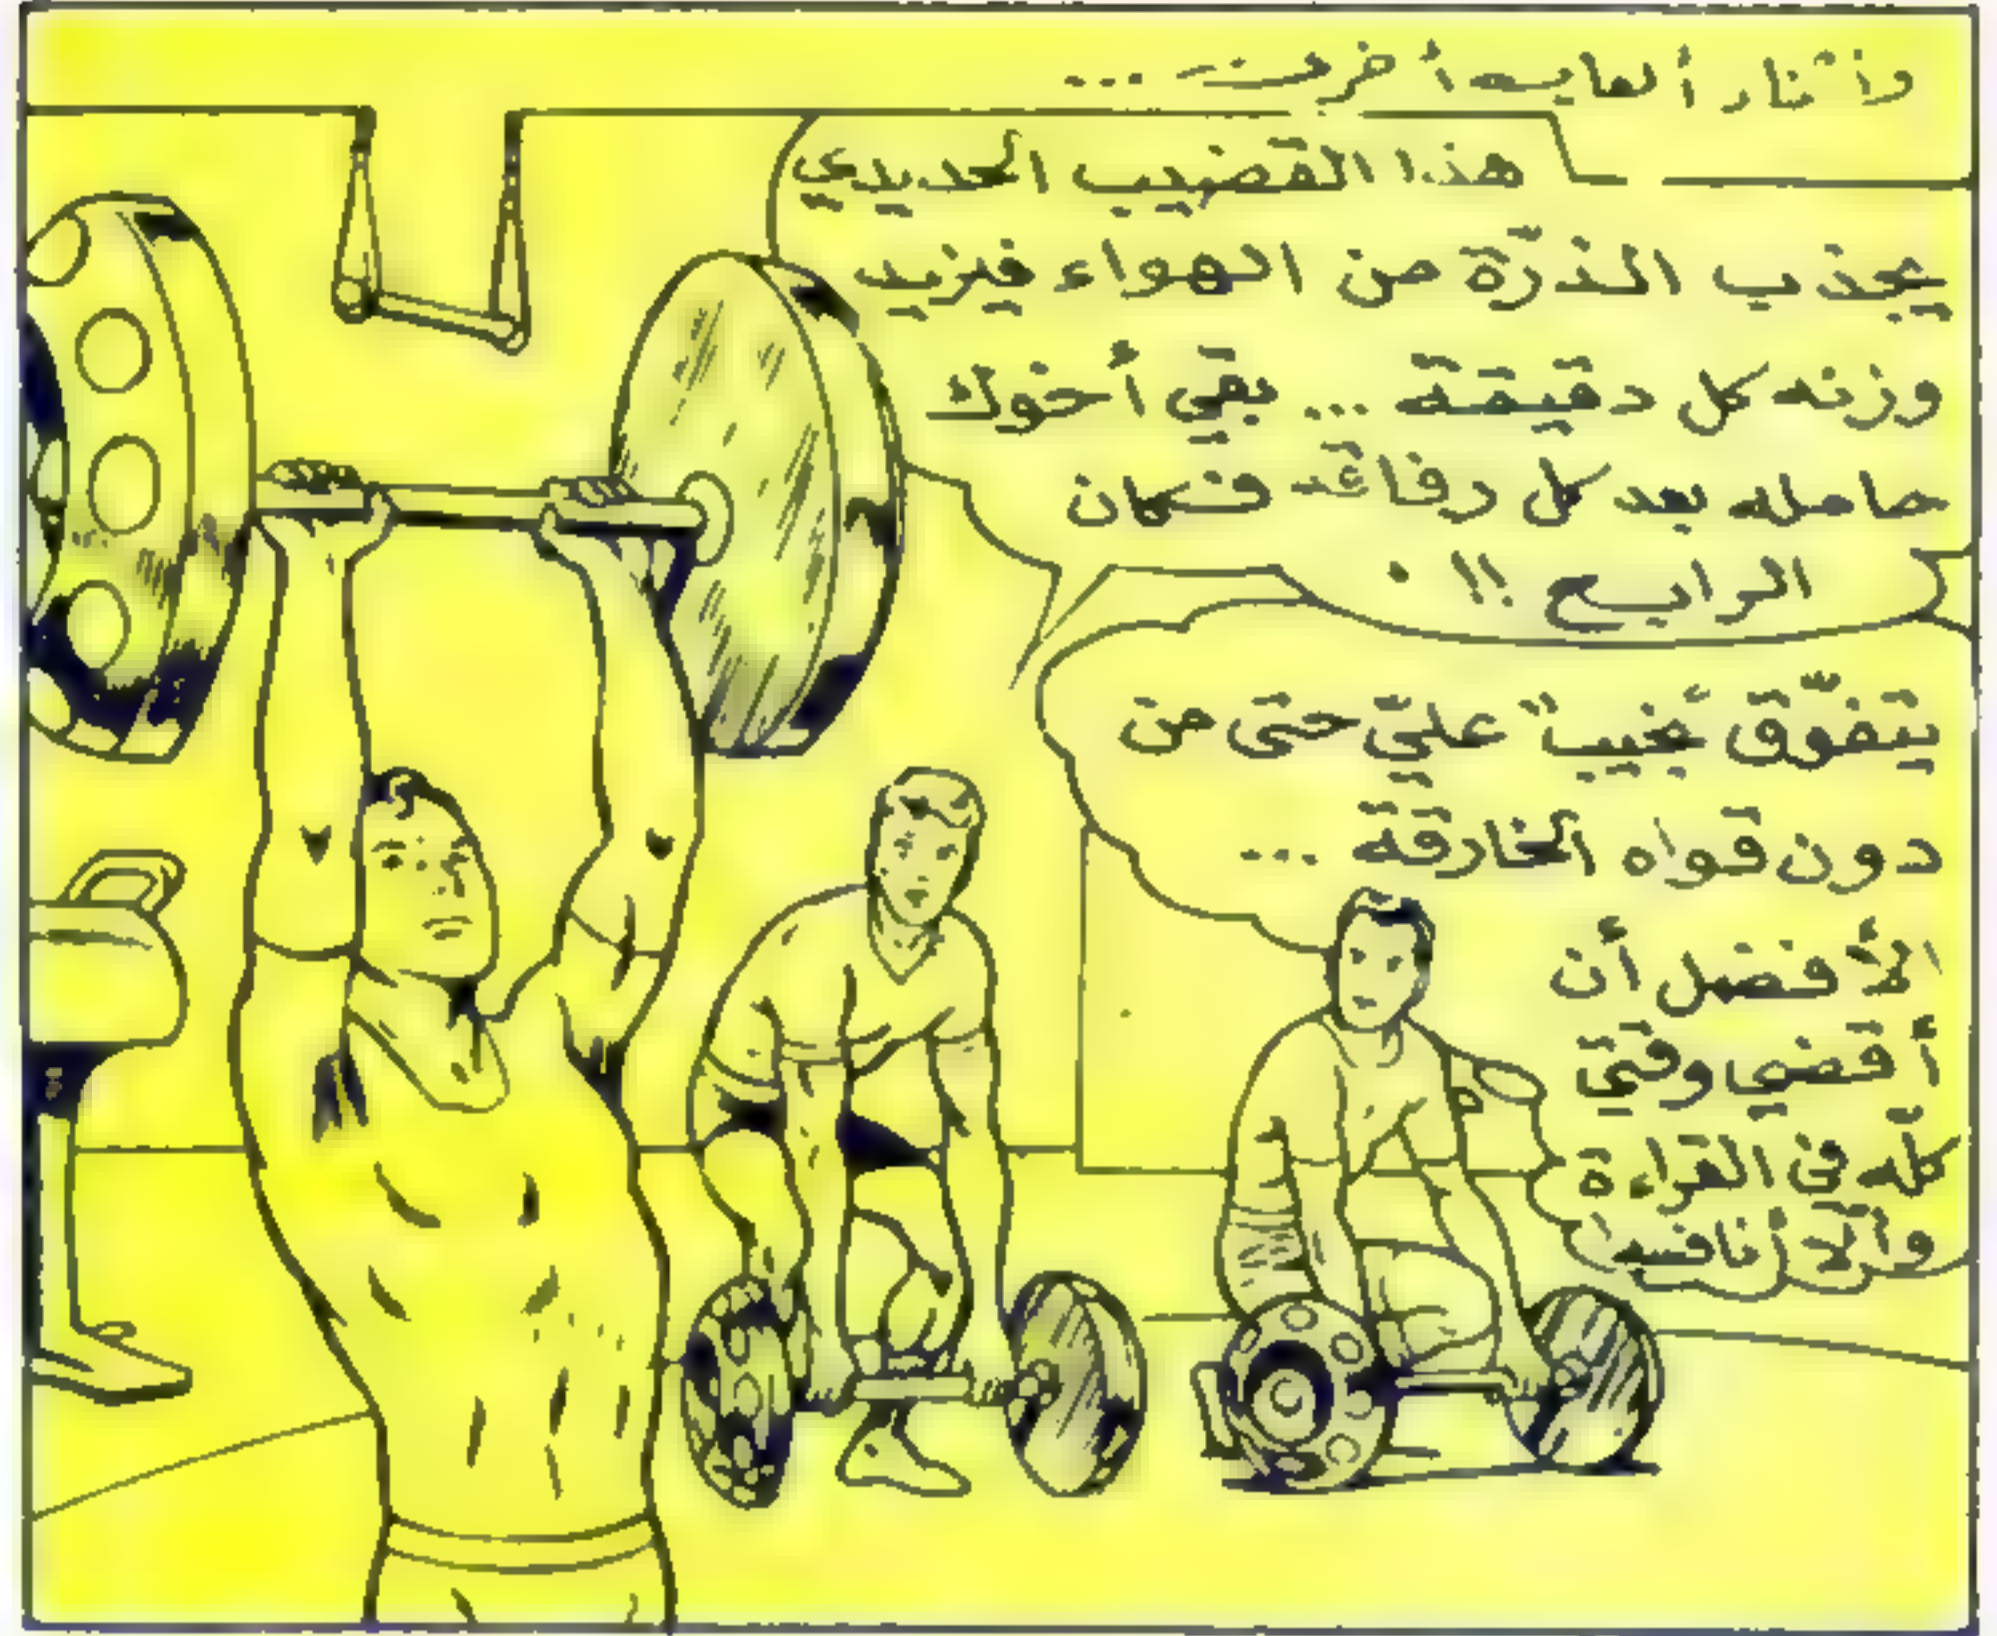 وأثناء ألعاب أخرى ...
هذا القضيب الحديدي
يجذب الذرّة من الهواء فيزيد
وزنه كل دقيقة ... بقي أخوك
حامله بعد كل رفاقه فكان
الرابح !! .
يتفوّق نجيب عليّ حتى من
دون قواه الخارقة ...
الأفضل أن
أقضي وقتي
كلّه في القراءة
وألّا أنافسه